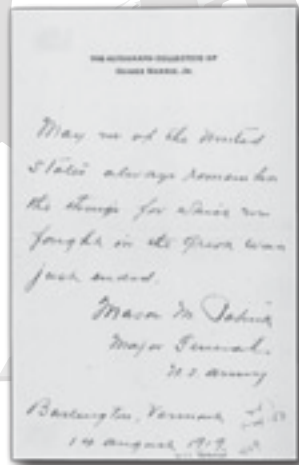 THE AUTOGRAPH COLLECTION OF
May we of the United
States always remember
the things for which we
fought in the Great War
just ended.
Mason M. Patrick
Major General.
U.S. Army
Burlington, Vermont
14 August 1919.